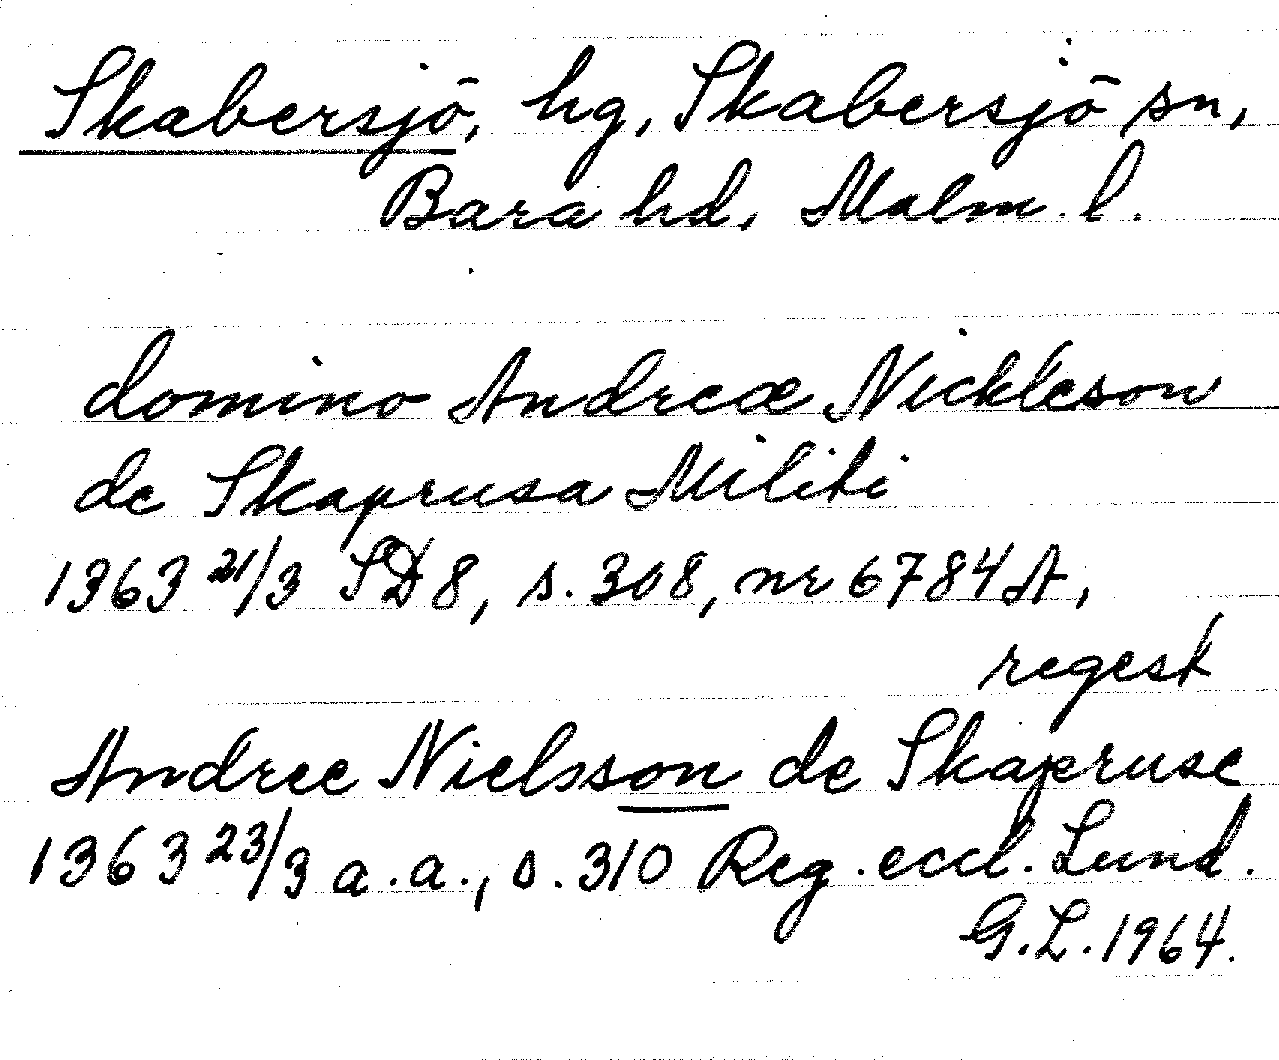 Skabersjö, hg, Skabersjö sn,
Bara hd, Malm. l.
domino Andreæ Nickleson
de Skaprusa Militi
1363 21/3 SD 8, s. 308, nr 6784 A,
regest
Andree Nielsson de Skaperuse
1363 23/3 a.a., s. 310 Reg. eccl. Lund.
G.L. 1964.